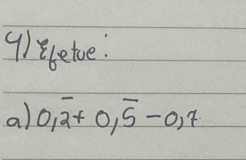 4) Efetue:
a) 0,2̅ + 0,5̅ - 0,7